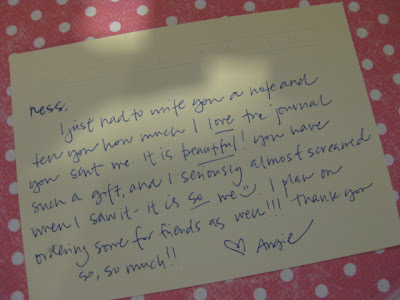 ness,
I just had to write you a note and
tell you how much I love the journal
you sent me. It is beautiful! you have
such a gift, and I seriously almost screamed
when I saw it - it is so me ☺. I plan on
ordering some for fiends as well!!! thank you
so, so much!!
♡ Angie